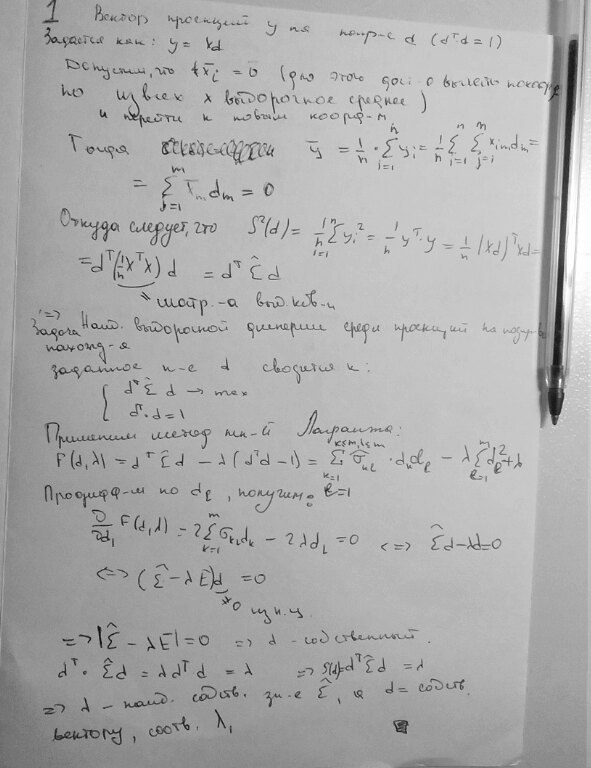 1 Вектор проекций y на напр-е d (dᵀd = 1)
Задается как: y = Xd
Допустим, что x̄ᵢ = 0 (для этого дос-о вычесть
по из всех x выборочное среднее)
и перейти к новым коорд-м
Тогда ȳ = 1/n · Σᵢ₌₁ⁿ yᵢ = 1/n Σᵢ₌₁ⁿ Σⱼ₌ᵢᵐ xᵢₘdₘ =
= Σⱼ₌₁ᵐ x̄ₘdₘ = 0
Откуда следует, что S²(d) = 1/n Σᵢ₌₁ⁿ yᵢ² = 1/n yᵀ·y = 1/n (Xd)ᵀXd =
= dᵀ(1/n XᵀX) d = dᵀ Σ̂ d
матр.-а выб. ков-и
=>
Задача наиб. выборочной дисперсии среди проекций на
нахожд-я
заданное н-е d сводится к:
{ dᵀ Σ̂ d → max
dᵀ·d = 1
Применим метод мн-й Лагранжа:
F(d,λ) = dᵀ Σ̂ d − λ(dᵀd − 1) = Σ σ̂ₖₗ · dₖdₗ − λ Σₗ₌₁ᵐ dₗ² + λ
Продифф-м по dₗ, получим:
∂/∂dₗ F(d,λ) = 2 Σₖ₌₁ᵐ σₖₗdₖ − 2λdₗ = 0 <=> Σ̂d − λd = 0
<=> (Σ̂ − λE)d = 0
≠0
=> |Σ̂ − λE| = 0 => d - собственный.
dᵀ · Σ̂d = λdᵀd = λ => S²(d) = dᵀΣ̂d = λ
=> λ - наиб. собств. зн-е Σ̂, а d = собств.
вектору, соотв. λ₁